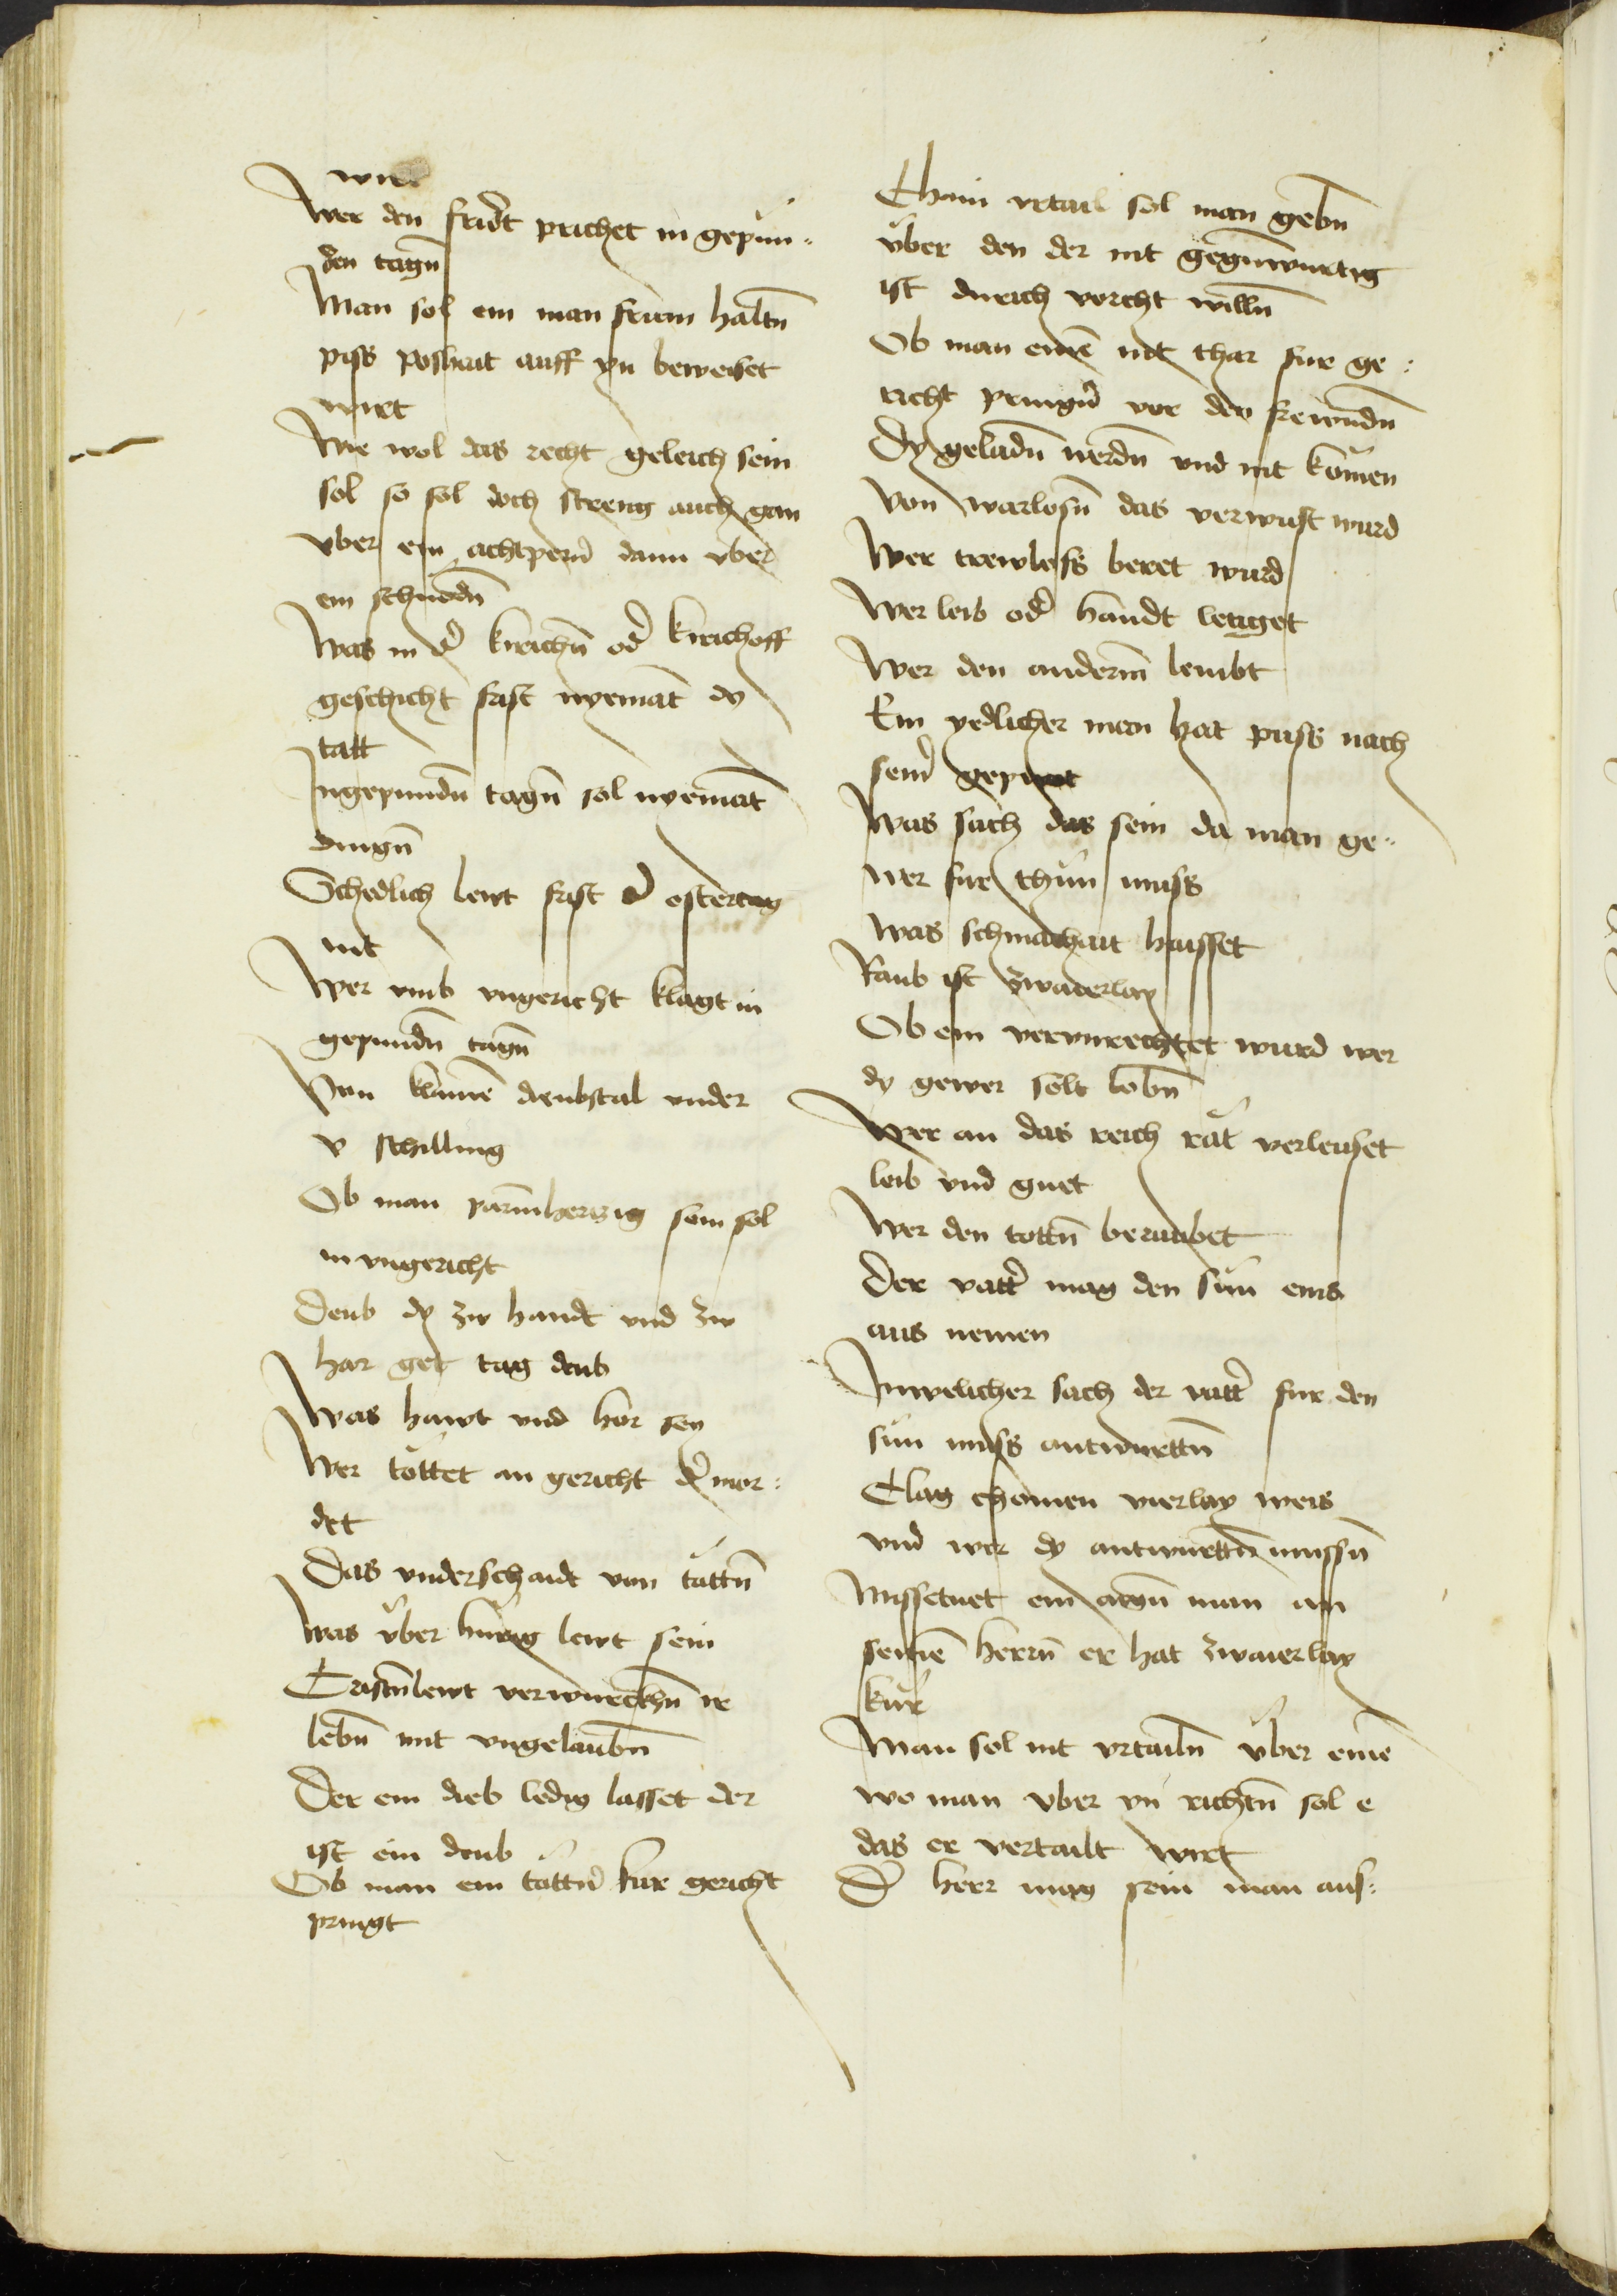 wirt
Wer den fridt prichet in gepun„
den tagn̄
Man sol ein man frum haltn̄
piss poshait auff yn beweiset
wirt
Wie wol das recht geleich sein
sol so sol doch streng auch gan
vber ein achtpern̄ dann vber
ein schnödn̄
Was in d̓ kirichn̄ od̓ kirichoff
geschicht frist nyemāt dy
tatt
Ingepundn̄ tagn̄ sol nyemāt
dingn̄
Schedlich lewt frist d̓ ostertag
nit
Wer vmb vngericht klagt in
gepundn̄ tagn̄
Von klainē dewbstal vnder
v schilling
Ob man parmhertzig sein sol
in vngericht
Deub dy zw handt vnd zw
har get tag deub
Was hawt vnd hor sey
Wer tottet an gericht d̓ mor„
det
Das vnderschaidt von tattn̄
Was vber hurig lewt sein
Cristn̄lewt verwurckhn̄ ir
lebn̄ mit vngelaubn̄
Der ein dieb ledig lasset der
ist ein deub
Ob man ein tottn̄ fur gericht
pringt
Chain vrtail sol man gebn̄
vber den der nit gegn̄wurtig
ist durich vorcht willn̄
Ob man einē nit thar fur ge„
richt pringn̄ vor den frewndn̄
Dy geladn̄ werdn̄ vnd nit komen
Von warlosn̄ das verwust wurd
Wer trewloss beret wurd
Wer leib od̓ handt letiget
Wer den anderm̄ lembt
Ein yedlicher man hat puss nach
sein̓ gepurt
Was sach das sein da man ge„
wer fur thun muss
Was schmachait haisset
Raub ist zwaierlay
Ob ein verunrechtet wurd wer
dy gewer solt lobn̄
Wer an das reich rat verleuset
leib vnd guet
Wer den tottn̄ beraubet
Der vatt̓ mag den sun eins
aus nemen
Inwelicher sach der vatt̓ fur den
sun muss antwurttn̄
Clag chomen vierlay weis
vnd wer dy antwurttn̄ mussn̄
Missetuet ein aign̄ man an
seinē herrn̄ er hat zwaierlay
kur
Man sol nit vrtailn̄ vber einē
wo man vber yn richtn̄ sol e
das er vertailt wirt
D̓ herr mag sein man aus„